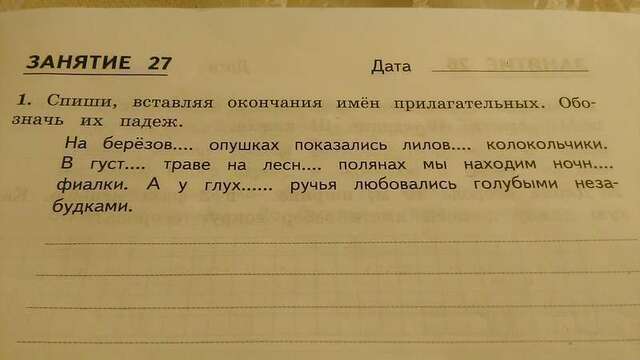 ЗАНЯТИЕ 27 Дата
1. Спиши, вставляя окончания имён прилагательных. Обо-
значь их падеж.
На берёзов.... опушках показались лилов.... колокольчики.
В густ.... траве на лесн.... полянах мы находим ночн....
фиалки. А у глух...... ручья любовались голубыми неза-
будками.